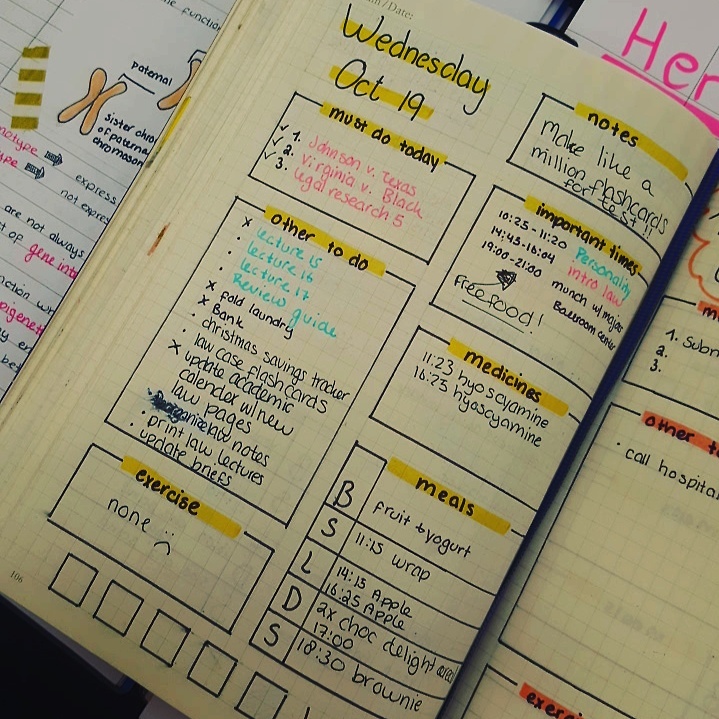 m/Date:
Wednesday
Oct 19
must do today
1. Johnson v. Texas
2. Virginia v. Black
3. legal research 5
other to do
x lecture 15
· lecture 16
· lecture 17
· Review guide
x fold laundry
x Bank
· christmas savings tracker
· law case flashcards
x update academic
calender w/ new
law pages
law notes
· print law lectures
· update briefs
exercise
none
106
notes
make like a
million flashcards
for test!!
important times
10:25-11:20 Personality
14:45-16:04 intro law
19:00-21:00 munch w/ major
Ballroom center
Free food!
medicines
11:23 hyoscyamine
16:23 hyoscyamine
meals
B fruit & yogurt
S 11:15 wrap
L 14:15 Apple
16:25 Apple
D 2x choc delight
17:00
S 18:30 brownie
e function
paternal
sister chro
of paternal
chromosom
notype
ype
express
not expres
are not always
t of gene int
nction wi
pigenet
ay er
bet
Her
m
1. Subm
2.
3.
other to
· call hospita
exerci